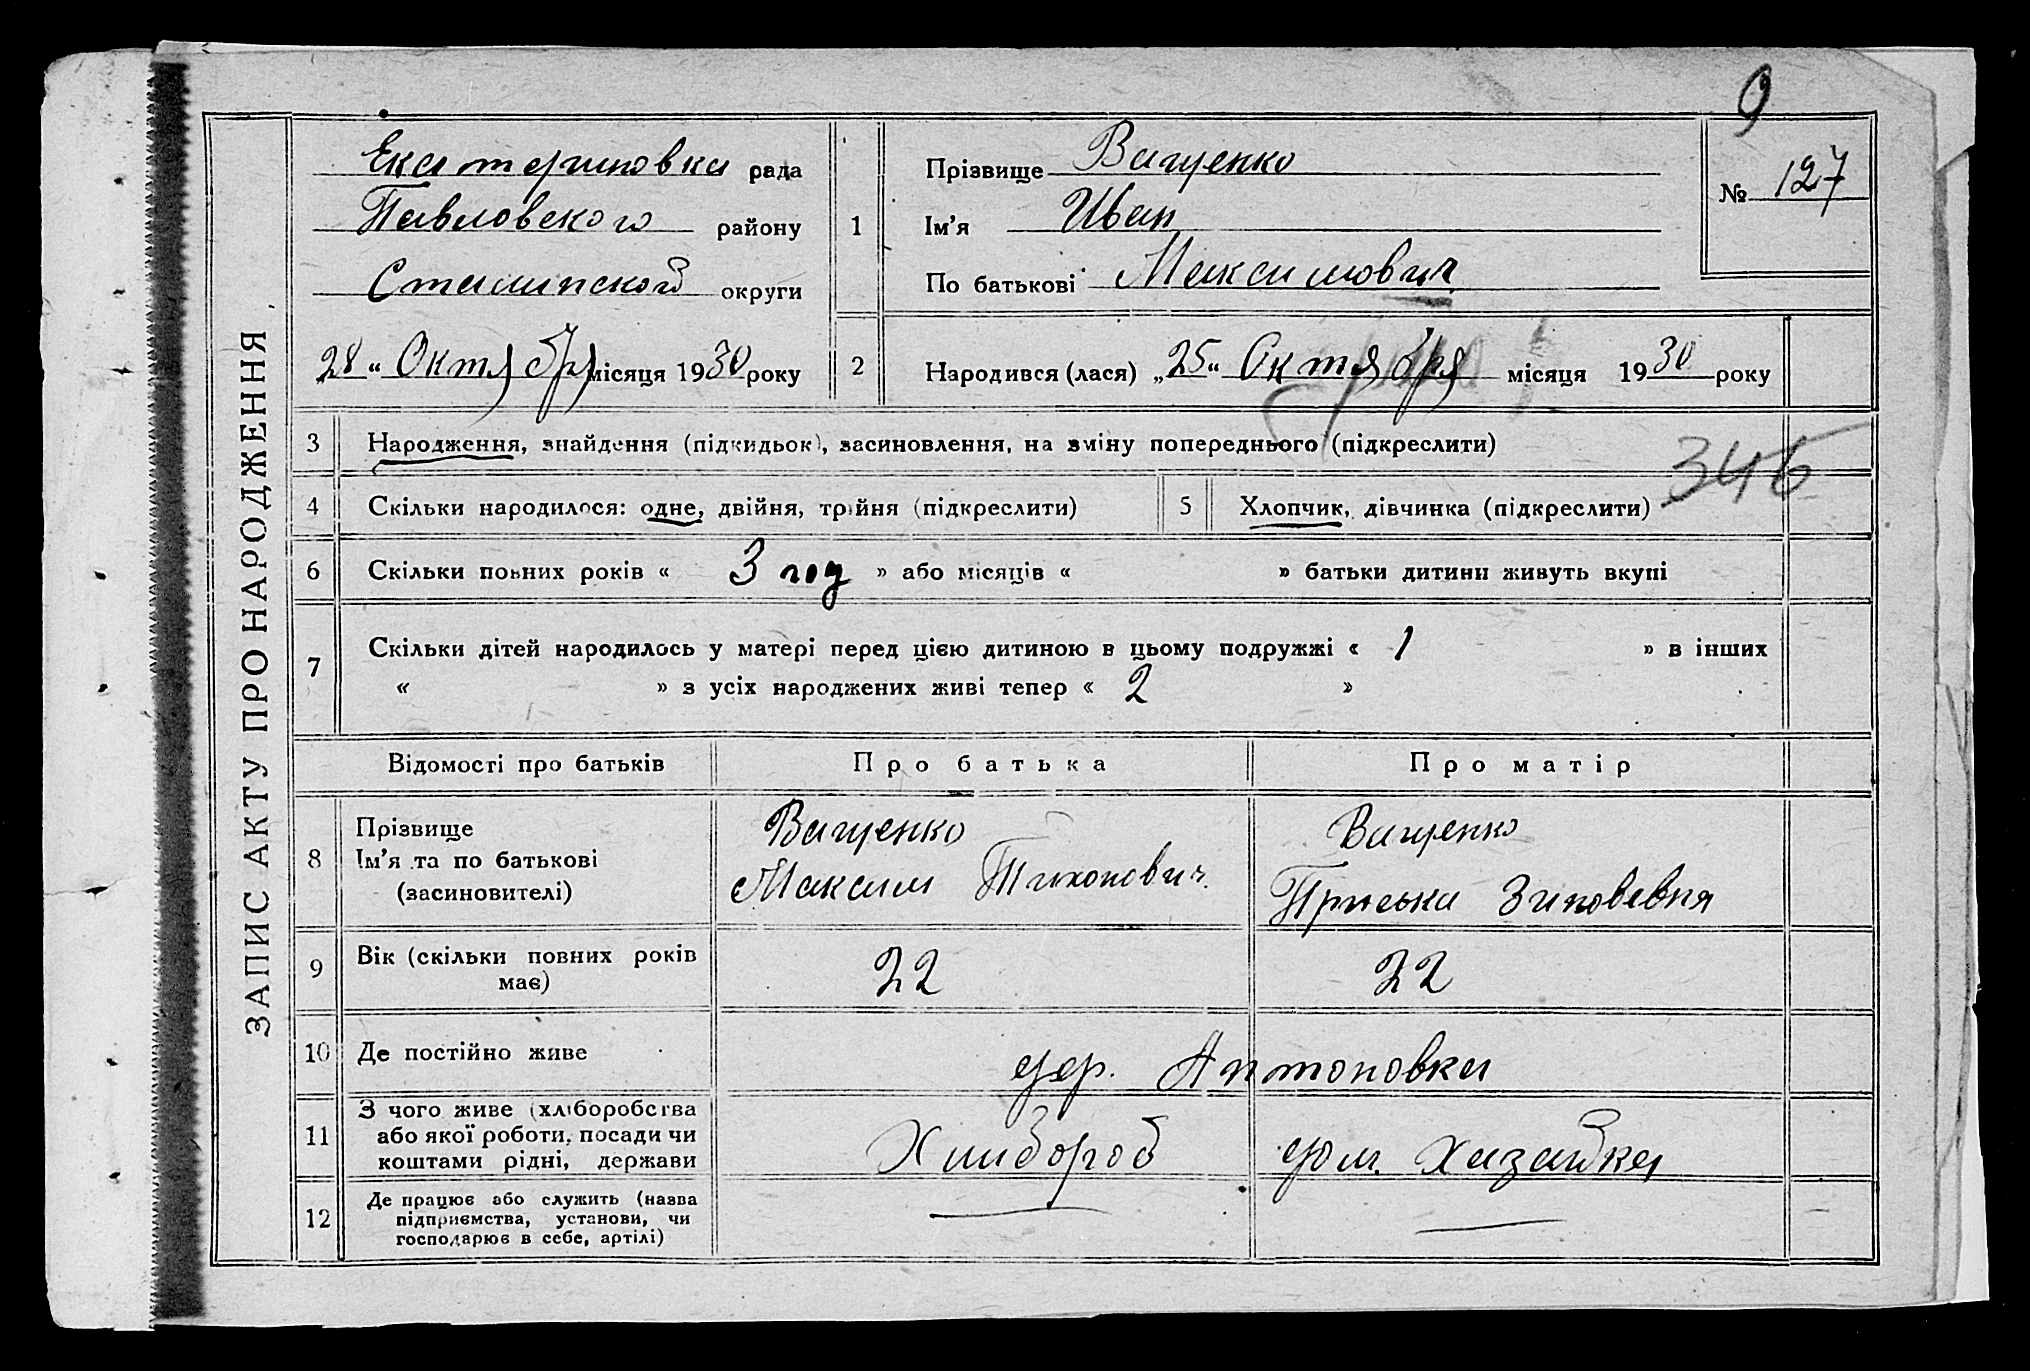 9
ЗАПИС АКТУ ПРО НАРОДЖЕННЯ
Екатериновка рада
Павловского району
Сталинской округи
28 “ Октября місяця 1930 року
1
Прізвище Ващенко
Ім’я Иван
По батькові Максимович
№ 127
2
Народився (лася) „25“ Октября місяця 1930 року
3 Народження, знайдення (підкидьок), засиновлення, на зміну попереднього (підкреслити)
346
4 Скільки народилося: одне, двійня, трійня (підкреслити)
5 Хлопчик, дівчинка (підкреслити)
6 Скільки повних років « 3 год » або місяців « » батьки дитини живуть вкупі
7 Скільки дітей народилось у матері перед цією дитиною в цьому подружжі « 1 » в інших
« » з усіх народжених живі тепер « 2 »
Відомості про батьків Про батька Про матір
8 Прізвище
Ім’я та по батькові
(засиновителі)
Ващенко
Максим Тихонович
Ващенко
Приська Зиновевня
9 Вік (скільки повних років
має)
22 22
10 Де постійно живе дер. Антоновка
11 З чого живе (хліборобства
або якої роботи, посади чи
коштами рідні, держави
Хлибороб дом. хазайка
12 Де працює або служить (назва
підприємства, установи, чи
господарює в себе, артілі)